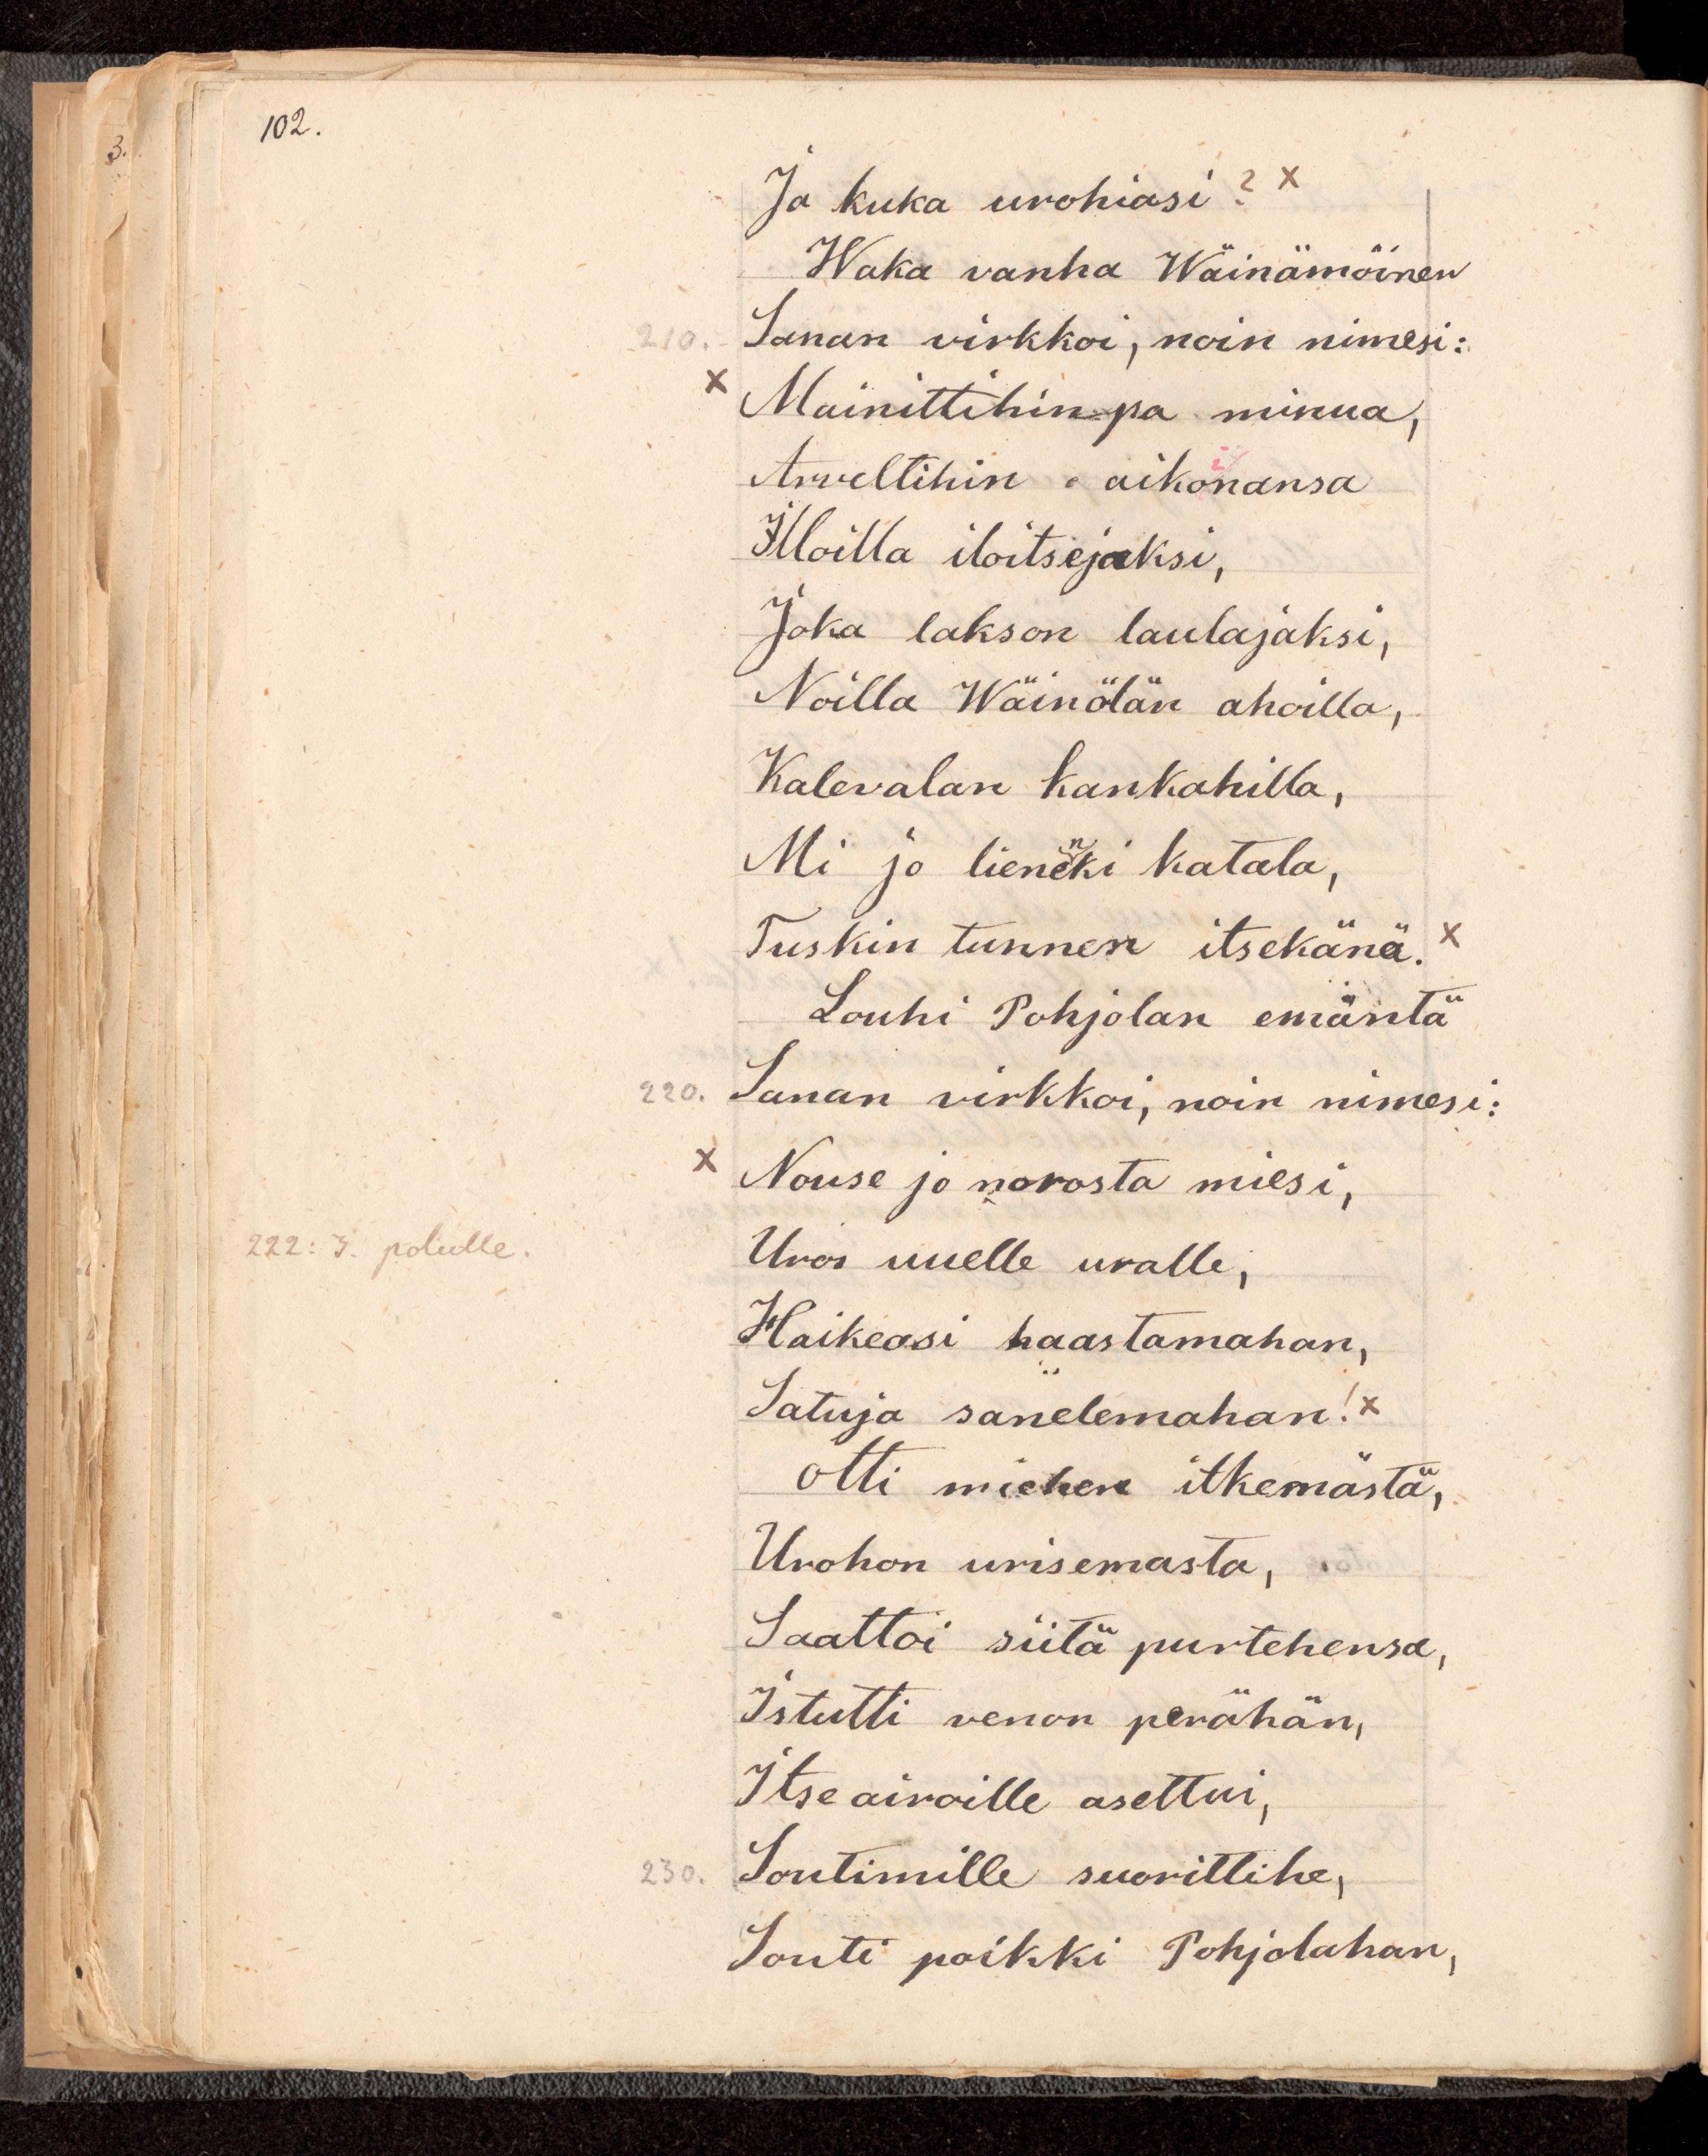 102.
3.
Ja kuka urohiasi? x
Waka vanha Wäinämöinen
210. Sanan virkkoi, noin nimesi:
x Mainittihin pa minua,
Arveltihin aikonansa
Illoilla iloitsejaksi,
Joka lakson laulajaksi,
Noilla Wäinölän ahoilla,
Kalevalan kankahilla,
Mi jo lienenki katala,
Tuskin tunnen itsekänä. x
Louhi Pohjolan emäntä
220. Sanan virkkoi, noin nimesi:
x Nouse jo norosta miesi,
222: 3. polulle.
Uros uuelle uralle,
Haikeasi haastamahan,
Satuja sanelemahan! x
Otti miehen itkemästä,
Urohon urisemasta,
Saattoi siitä purtehensa,
Istutti venon perähän,
Itse airoille asettui,
230. Soutimille suorittihe,
Souti poikki Pohjolahan,